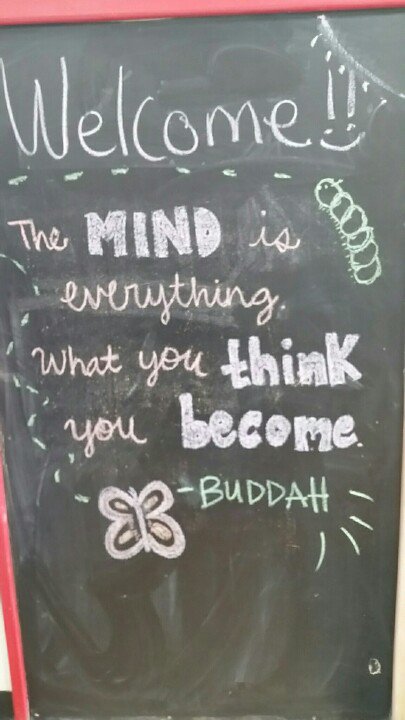 Welcome!!
The MIND is
everything.
What you think
you become.
-BUDDAH